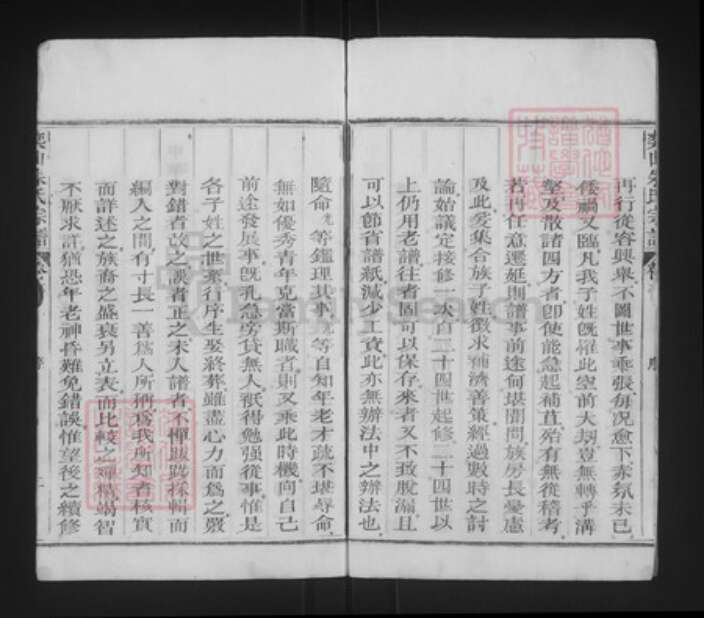 再行從容興舉不圖世事乖張每况愈下赤氛未已
倭禍又臨凡我子姓既罹此空前大刼豈無轉乎溝
壑及散諸四方者即使能急起補苴殆有無從稽考
若再任意遷延則譜事前途何堪聞問族房長憂慮
及此爰集合族子姓徵求補濟善策經過數時之討
論始議定接修一次自二十四世起修二十四世以
上仍用老譜往者固可以保存來者又不致脫漏且
可以節省譜紙減少工資此亦無辦法中之辦法也
隨命 等鑑理其事 等自知年老才疏不堪辱命
無如優秀青年克當斯職者則又乘此時機向自己
前途發展事既孔急旁貸無人祇得勉强從事惟是
各子姓之世系行序生娶終葬雖盡心力而為之嚴
對錯者改之誤者正之未入譜者不憚跋踄採輯而
編入之間有寸長一善為人所稱為我所知者核實
而詳述之族裔之盛衰另立表而比較之殫精竭智
不厭求詳猶恐年老神昏難免錯誤惟望後之續修
朱氏宗譜
FamilySearch